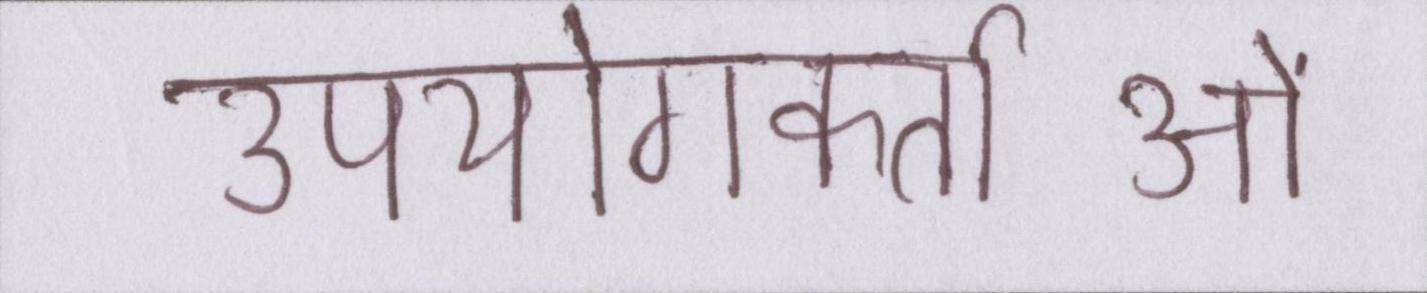 उपयोगकर्ता ओं